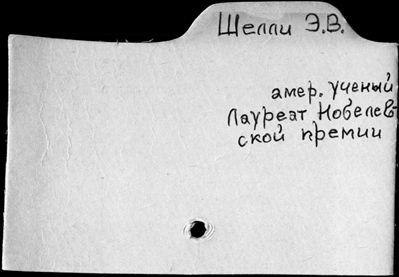 Шелли Э.В.
амер. ученый
Лауреат Нобелев-
ской премии